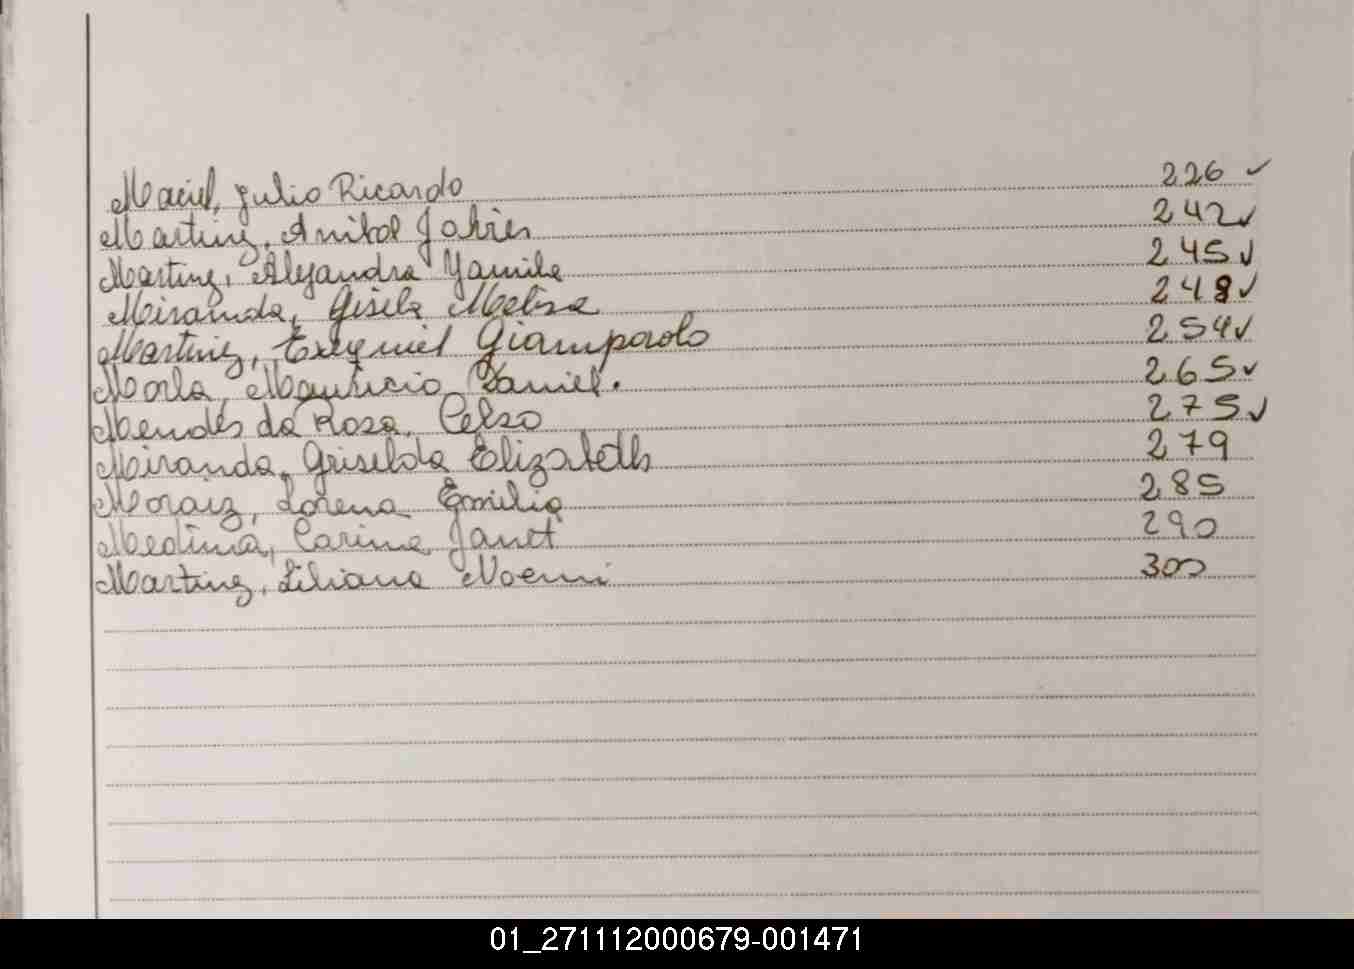 Maciel, Julio Ricardo 226 ✓
Martinez, Anibal Fabián 242 ✓
Martinez, Alejandra Yamila 245 ✓
Miranda, Gisela Melisa 248 ✓
Martinez, Exequiel Giampaolo 254 ✓
Morla, Mauricio Daniel. 265 ✓
Mendes da Rosa, Celso 275 ✓
Miranda, Griselda Elizabeth 279
Moraiz, Lorena Emilia 285
Medina, Carina Janet 290
Martinez, Liliana Noemi 300
01_271112000679-001471